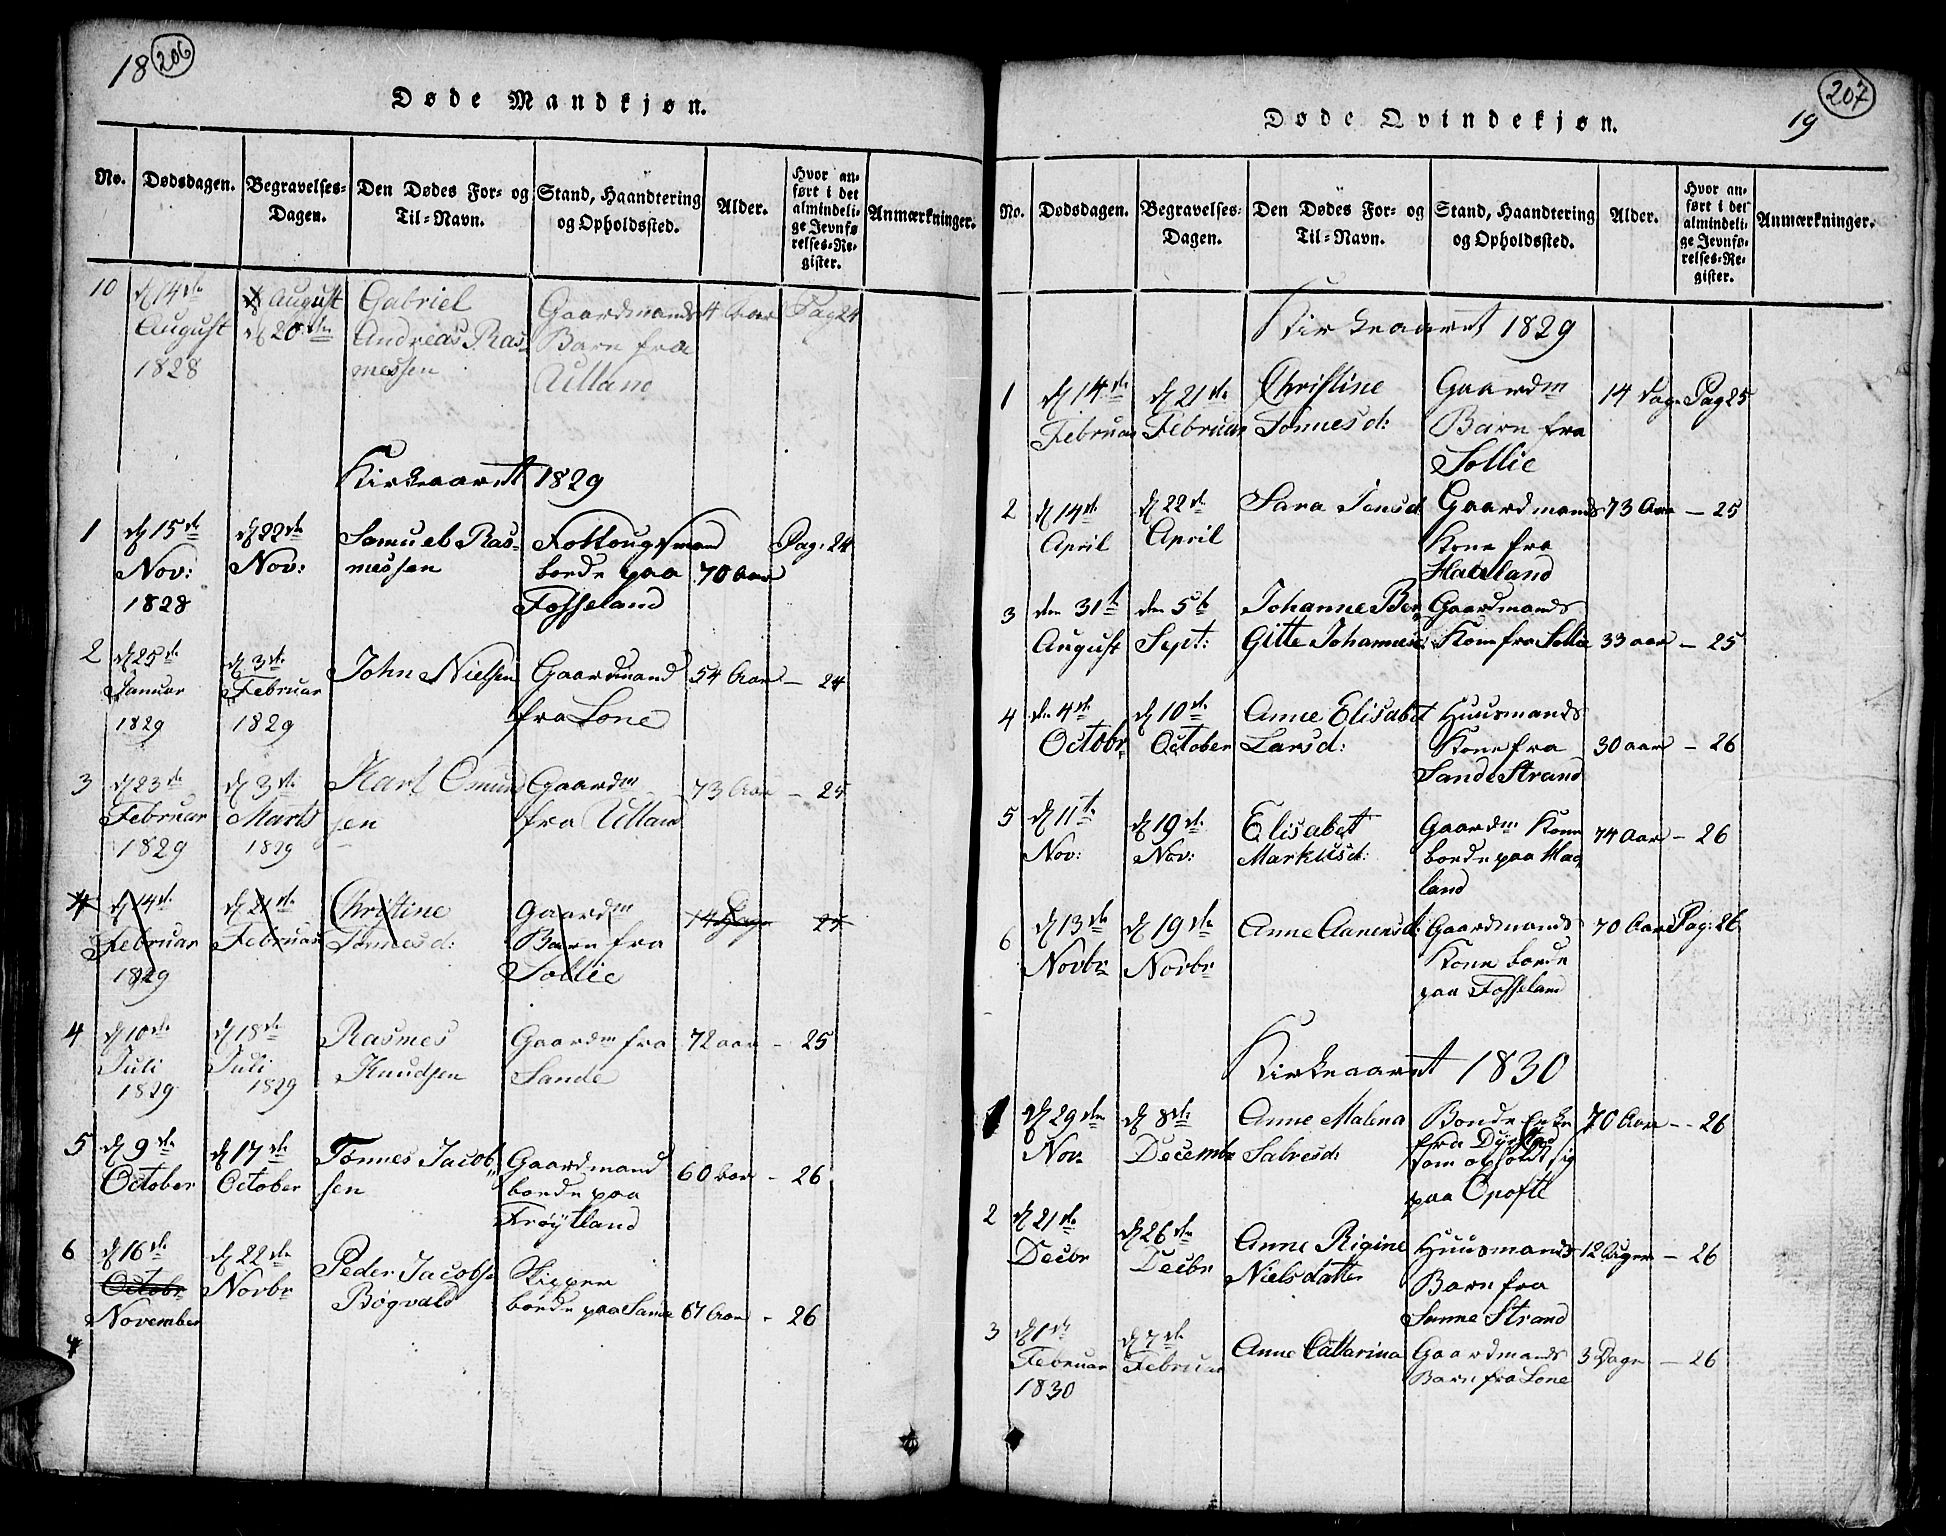 18 206
Døde Mandkjøn.
No. Dødsdagen. Begravelses-Dagen. Den Dødes For- og Til-Navn. Stand, Haandtering og Opholdssted. Alder. Hvor anført i det almindelige Jevnførelses-Register. Anmærkninger.
10 d 14de August Gabriel Gaardmands 4 Aar Pag 24
August d 20de Andreas Ras- Barn fra
1828 messen Ulland
Kirkeaaret 1829
1 d 15de d 22de Samuel Ras- Pag: 24
Nov: Nov: messen boede paa 70 Aar
1828 Fosseland
2 d 25de d 3de John Nielsen Gaardmand 54 Aar – 24
Januar Februar fra Lone
1829 1829
3 d 23de d 3de Karl Osmund Gaardm 73 Aar – 25
Februar Marts sen fra Ulland
1829 1829
4 d 14de d 21de Christine Gaardm 14 Dage 24
Februar Februar Tønnesd: Barn fra
1829 Sollie
4 d 10de d 18de Rasmes Gaardm fra 72 aar – 25
Juli Juli Knudsen Sande
1829 1829
5 d 9de d 17de Tønnes Jacob- Gaardmand 60 aar – 26
October October sen boede paa
Frøÿtland
6 d 16de d 22de Peder Jacobsen Skipper
Octobr Novbr Bøgvald boede paa Sande 67 Aar – 26
November
7
207
19
Døde Qvindekjøn.
No. Dødsdagen. Begravelses-Dagen. Den Dødes For- og Til-Navn. Stand, Haandtering og Opholdssted. Alder. Hvor anført i det almindelige Jevnførelses-Register. Anmærkninger.
Kirkeaaret 1829
1 d 14de d 21de Christine Gaardm 14 Dage Pag 25
Februar Februar Tønnesd: Barn fra
Sollie
2 d 14de d 22de Sara Jensd Gaardmands 73 Aar – 25
April April Kone fra
Haaland
3 den 31te den 5te Johanne Ber Gaardmands
August Sept: Gitte Johannesd: Kone fra Sollie 33 aar – 25
4 den 4de d 10de Anne Elisabet Huusmands
Octobr October Larsd: Kone fra 30 aar – 26
Sande Strand
5 d 11te d 19de Elisabet Gaardm Kone 74 Aar – 26
Nov: Nov: Markusd: boede paa Hau
land
6 d 13de d 19de Anne Aanensd: Gaardmands 70 Aar Pag: 26
Novbr Novbr Kone boede
paa Fosseland
Kirkeaaret 1830
1 d 29de d 8de Anne Malena Bonde Enke 70 Aar – 26
Nov: Decembr Salvesd: fra
som opholdt sig
paa Opofte
2 d 21de d 26de Anne Rigine Huusmands 12 Uger – 26
Decbr Decbr Nielsdatter Barn fra
Sanne Strand
3 d 1de d 7de Anne Cattarina Gaardmands 3 Dage – 26
Februar Februar Barn fra Lone
1830